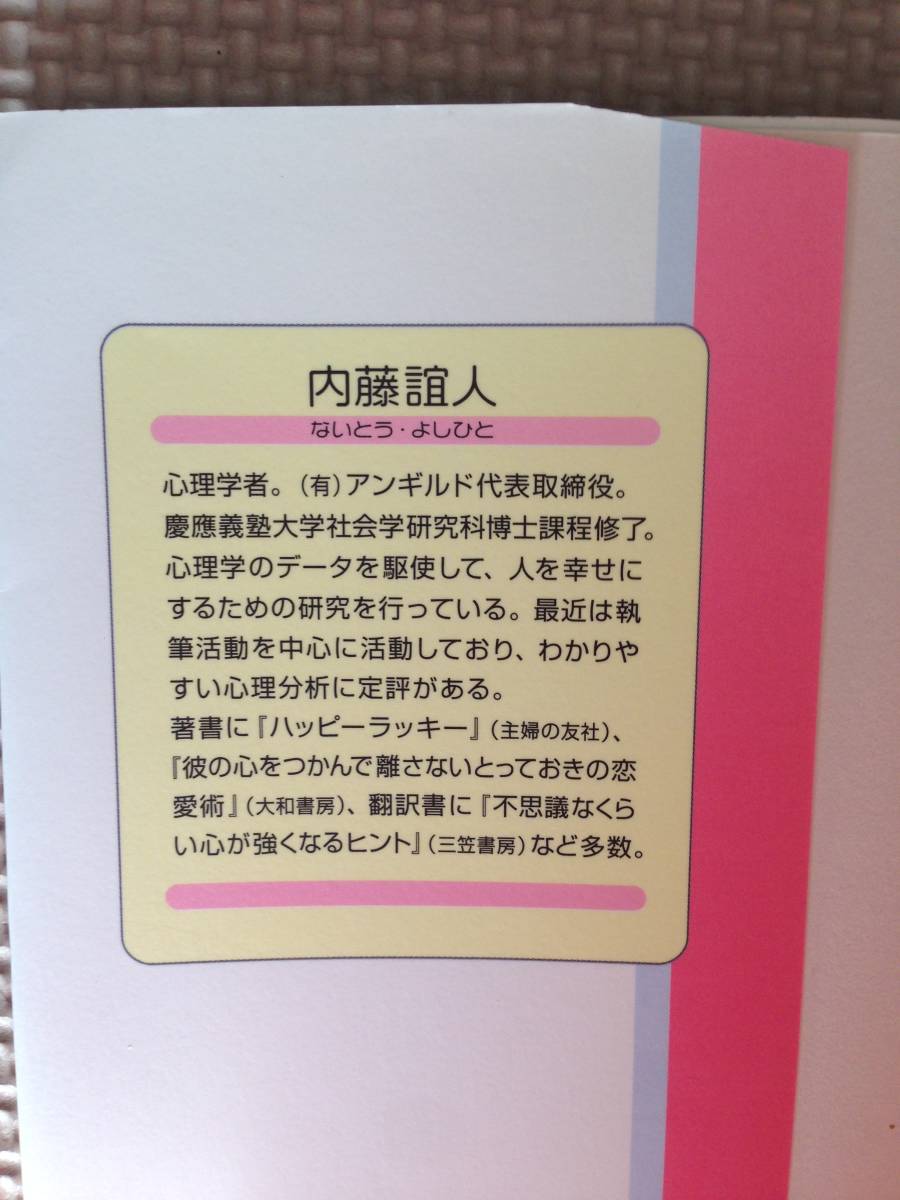 内藤誼人
ないとう・よしひと
心理学者。(有)アンギルド代表取締役。
慶應義塾大学社会学研究科博士課程修了。
心理学のデータを駆使して、人を幸せに
するための研究を行っている。最近は執
筆活動を中心に活動しており、わかりや
すい心理分析に定評がある。
著書に『ハッピーラッキー』(主婦の友社)、
『彼の心をつかんで離さないとっておきの恋
愛術』(大和書房)、翻訳書に『不思議なくら
い心が強くなるヒント』(三笠書房)など多数。